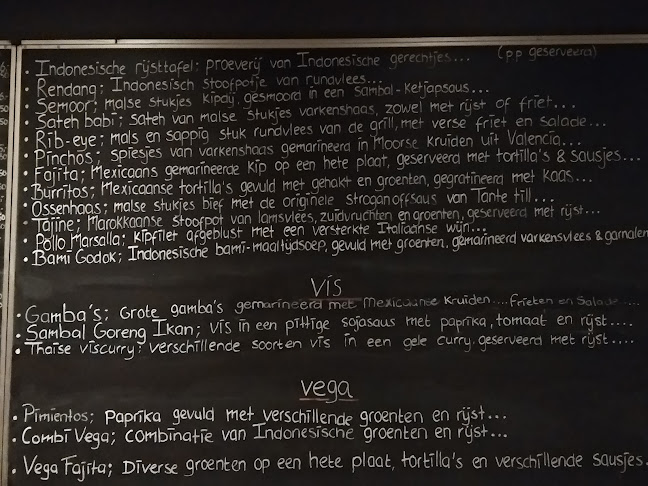 • Indonesische rijsttafel: proeverij van Indonesische gerechtjes... (pp geserveerd)
• Rendang; Indonesisch stoofpotje van rundvlees...
• Semoor; malse stukjes kipdij, gesmoord in een Sambal-ketjapsaus...
• Sateh babi; sateh van malse stukjes varkenshaas, zowel met rijst of friet...
• Rib-eye; mals en sappig stuk rundvlees van de grill, met verse friet en salade...
• Pinchos; spiesjes van varkenshaas gemarineerd in Moorse kruiden uit Valencia...
• Fajita; Mexicaans gemarineerde kip op een hete plaat, geserveerd met tortilla's & sausjes...
• Burritos; Mexicaanse tortilla's gevuld met gehakt en groenten, gegratineerd met kaas...
• Ossenhaas; malse stukjes bief met de originele stroganoffsaus van Tante till...
• Tajine; Marokkaanse stoofpot van lamsvlees, zuidvruchten en groenten, geserveerd met rijst...
• Pollo Marsalla; kipfilet afgeblust met een versterkte Italiaanse wijn...
• Bami Godok; Indonesische bami-maaltijdsoep, gevuld met groenten, gemarineerd varkensvlees & garnalen
vis
• Gamba's; Grote gamba's gemarineerd met Mexicaanse Kruiden.... Frieten en Salade....
• Sambal Goreng Ikan; vis in een pittige sojasaus met paprika, tomaat en rijst....
• Thaise viscurry; verschillende soorten vis in een gele curry, geserveerd met rijst....
vega
• Pimientos; Paprika gevuld met verschillende groenten en rijst...
• Combi Vega; combinatie van Indonesische groenten en rijst...
• Vega Fajita; Diverse groenten op een hete plaat, tortilla's en verschillende sausjes.